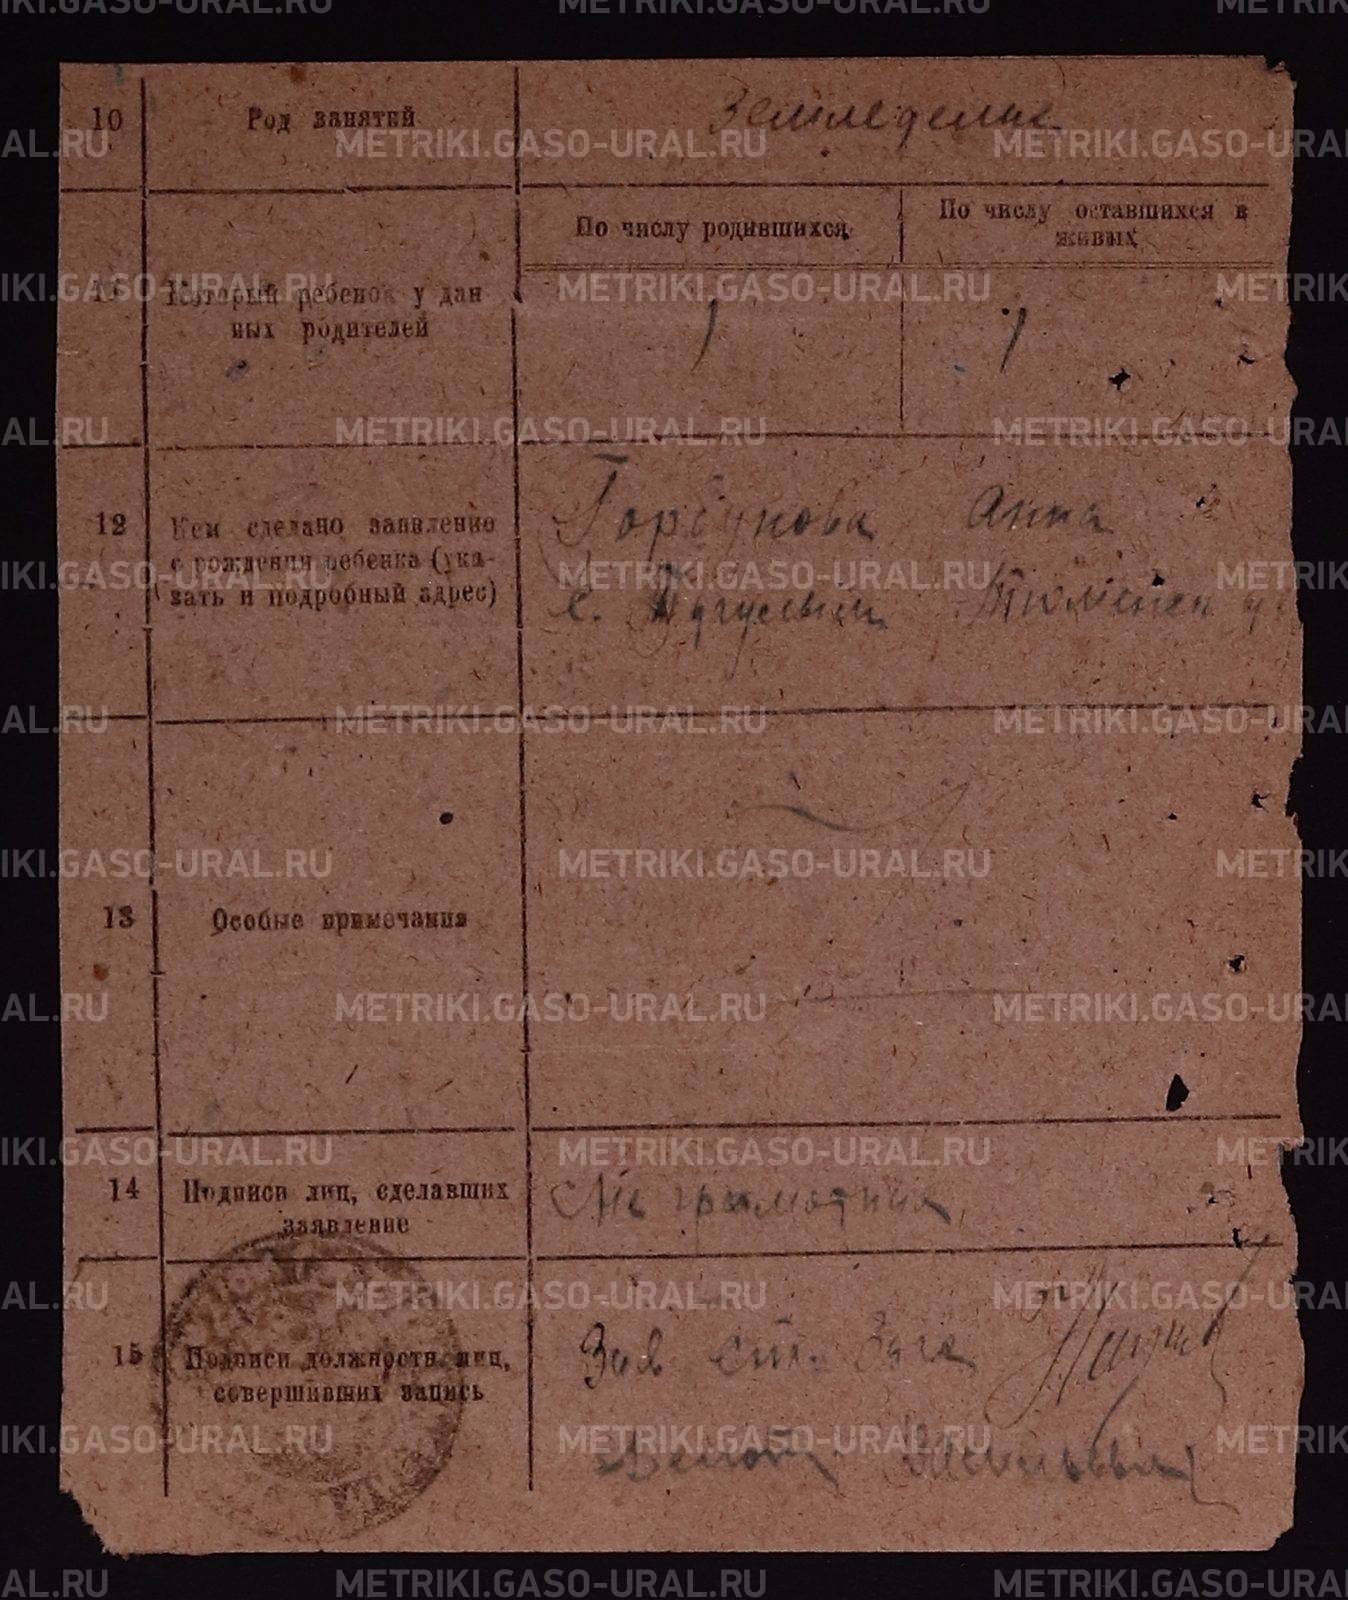 10 Род занятий Земледелие
По числу родившихся По числу оставшихся в
живых
11 Который ребенок у дан
ных родителей 1 1
12 Кем сделано заявление Горбунова Анна
о рождении ребенка (ука-
зать и подробный адрес) с. Тугулым Тюменск у
13 Особые примечания
14 Подписи лиц, сделавших Не грамотная
заявление
15 Подписи должностн. лиц, Зав
совершивших запись
METRIKI.GASO-URAL.RU